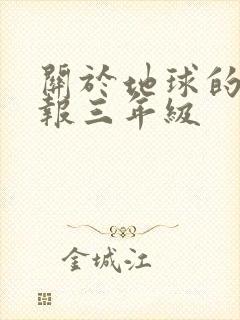 關於地球的
報三年級
金城江